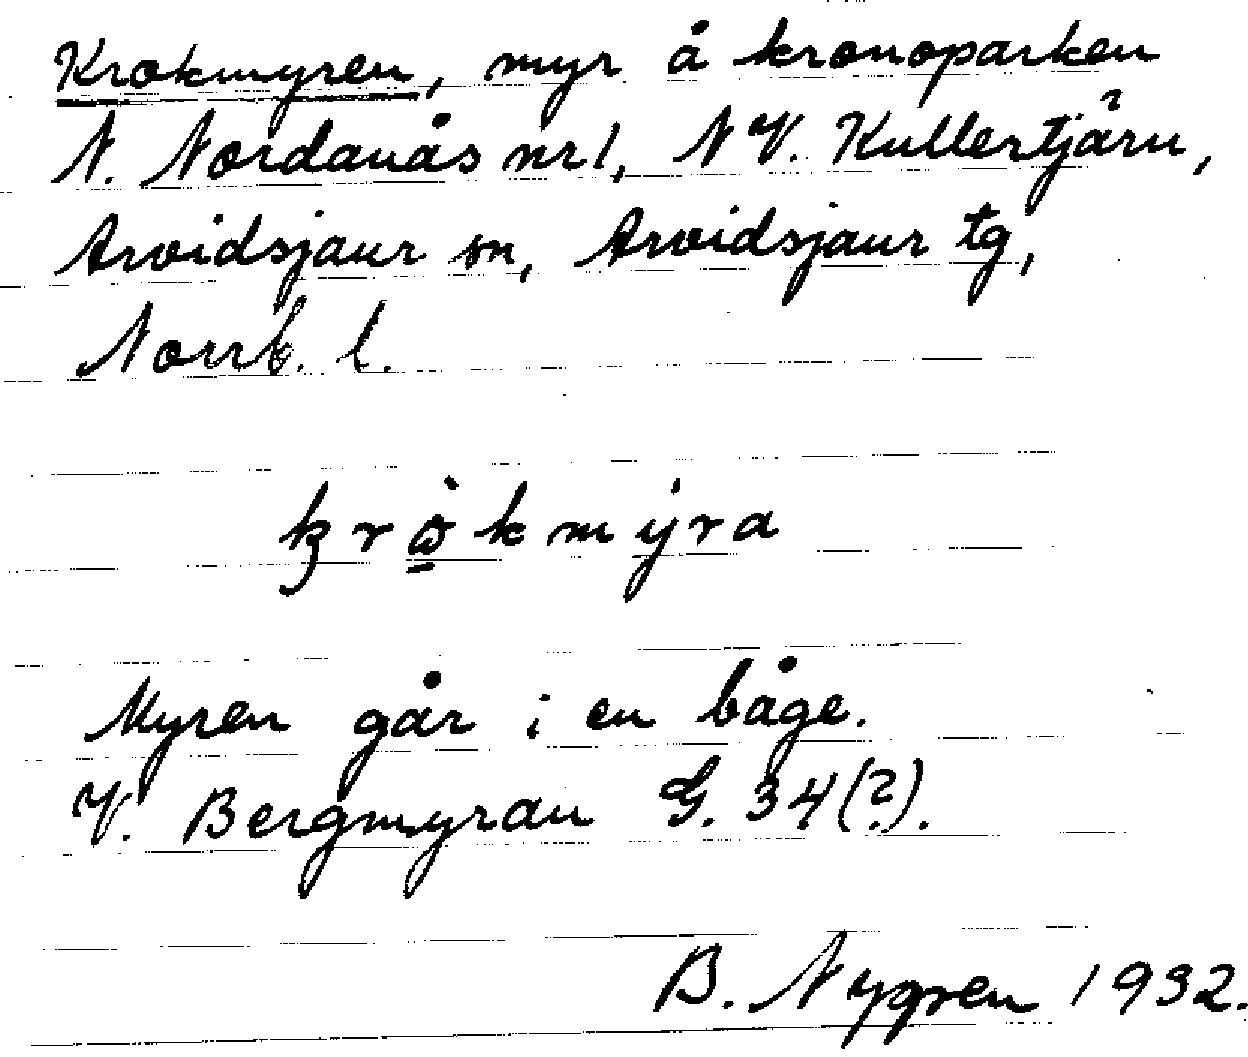 Krokmyren, myr å kronoparken
N. Nordanås nr 1, NV. Kullertjärn,
Arvidsjaur sn, Arvidsjaur tg,
Norrb. l.
krὼ̲kmýra
Myren går i en båge.
V. Bergmyran G. 34(?).
B. Nygren 1932.